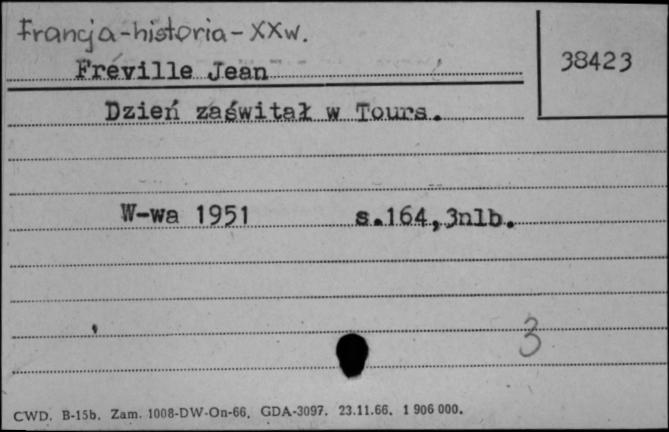 Francja-historia-XXw.
Freville Jean
38423
Dzień zaświtał w Tours.
W-wa 1951 s.164,3nlb.
3
CWD. B-15b. Zam. 1008-DW-On-66, GDA-3097. 23.11.66. 1 906 000.